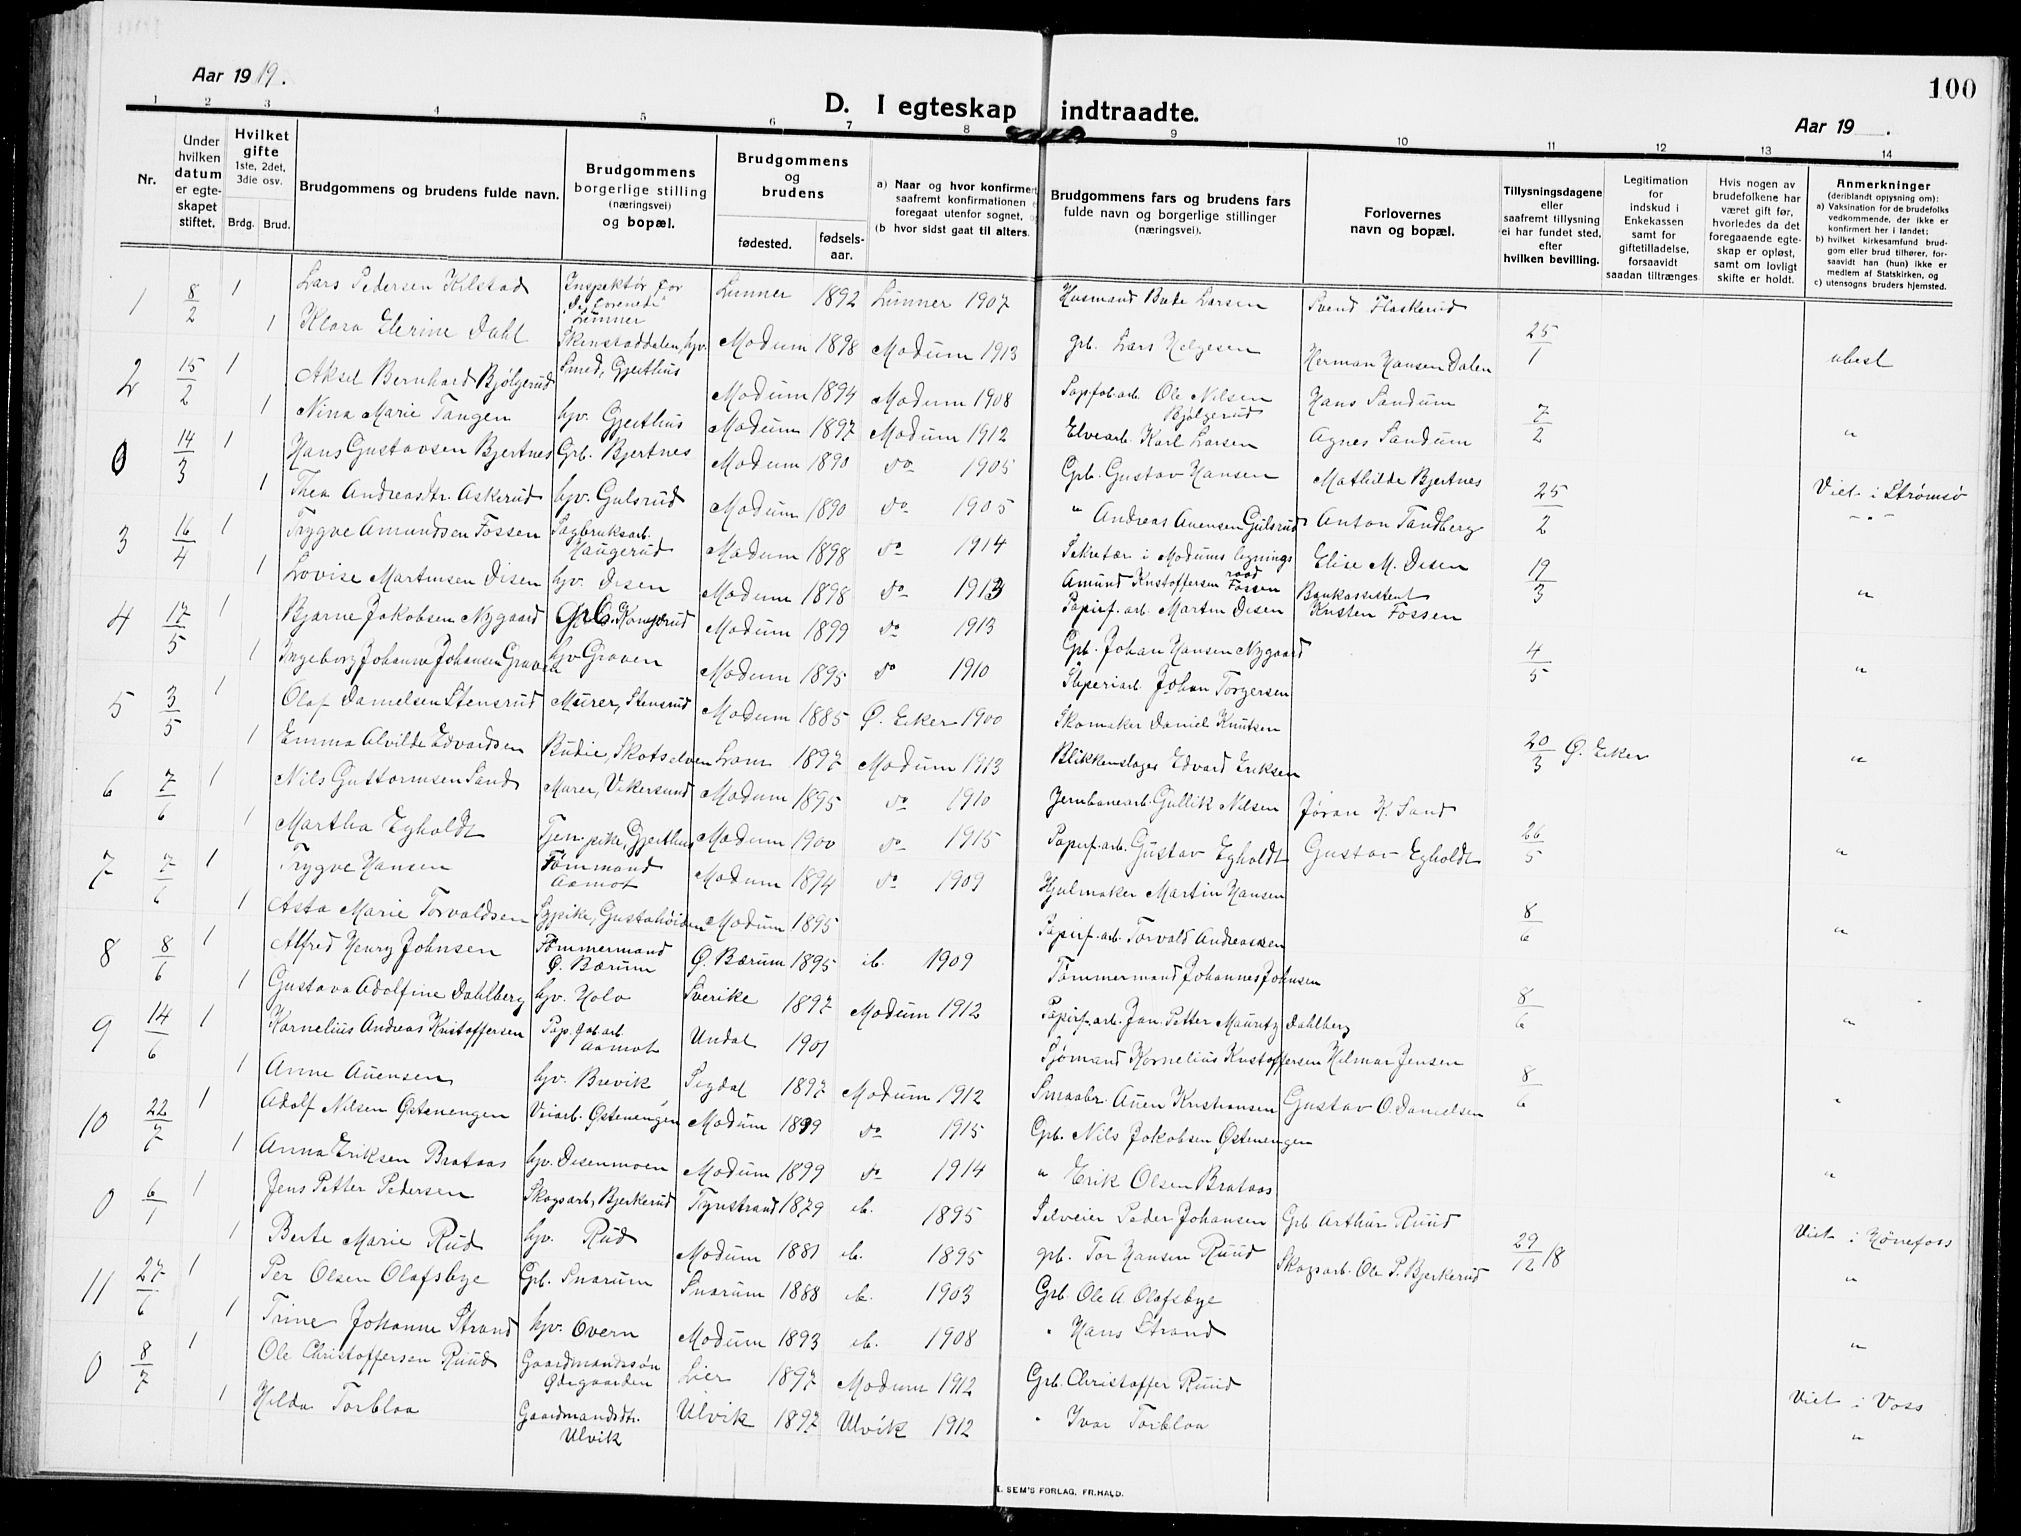 Aar 1919.
100
D. I egteskap indtraadte.
Aar 19 .
1 2 3 4 5 6 7 8 9 10 11 12 13 14
Nr.
Under hvilken datum er egteskapet stiftet.
Hvilket gifte 1ste, 2det, 3die osv.
Brdg. Brud.
Brudgommens og brudens fulde navn.
Brudgommens borgerlige stilling (næringsvei) og bopæl.
Brudgommens og brudens
fødested. fødselsaar.
a) Naar og hvor konfirmert saafremt konfirmationen foregaat utenfor sognet,
(b hvor sidst gaat til alters.
Brudgommens fars og brudens fars fulde navn og borgerlige stillinger (næringsvei).
Forlovernes navn og bopæl.
Tillysningsdagene eller saafremt tillysning ei har fundet sted, efter hvilken bevilling.
Legitimation for indskud i Enkekassen samt for giftetilladelse, forsaavidt saadan tiltrænges
Hvis nogen av brudefolkene har været gift før, hvorledes da det foregaaende egteskap er opløst, samt om lovligt skifte er holdt.
Anmerkninger (deriblandt oplysning om):
a) Vaksination for de brudefolks vedkommende, der ikke er konfirmert her i landet;
b) hvilket kirkesamfund brudgom eller brud tilhører, forsaavidt han (hun) ikke er medlem af Statskirken, og
c) utensogns bruders hjemsted.
1 8/2 1 Lars Pedersen Kilstad Inspektør for "De forenede" Lunner Lunner 1892 Lunner 1907 Husmand Larsen Svend Flaskerud
1 Klara Elerine Dahl Skinstaddalen, hjv. Modum 1898 Modum 1913 grb. Lars Helgesen Herman Hansen Dalen 25/1 ubest
2 15/2 1 Aksel Bernhard Bjølgerud Smed, Gjerthus Modum 1894 Modum 1908 Papfab.arb. Ole Nilsen Bjølgerud Hans Sandum
1 Nina Marie Tangen hjv. Gjerthus Modum 1897 Modum 1912 Elvearb. Karl Larsen Agnes Sandum 7/2 "
0 14/3 1 Hans Gustavsen Bjertnes Grb. Bjertnes Modum 1890 do 1905 Grb. Gustav Hansen Mathilde Bjertnes Viet i Strømsø
1 Thea Andreasdtr. Askerud hjv. Gulsrud Modum 1890 do 1905 " Andreas Auensen Gulsrud Anton Tandberg 25/2 - " -
3 16/4 1 Trygve Amundsen Fossen Sagbruksarb. Haugerud Modum 1898 do 1914 Sekretær i Modums ligningsraad Amund Kristoffersen Fossen Elise M. Disen
1 Lovise Martinsen Disen hjv. Disen Modum 1898 do 1913 Papirf. arb. Martin Disen Bankassistent Kristen Fossen 19/3 "
4 17/5 1 Bjarne Jakobsen Nygaard Grb. Kongsrud Modum 1899 do 1913 Grb. Johan Hansen Nygaard
1 Ingeborg Johanne Johansen Graven hjv Graven Modum 1895 do 1910 Johan Torgersen 4/5 "
5 3/5 1 Olaf Danielsen Stensrud Murer, Stensrud Modum 1885 Ø. Eker 1900 Skomaker Daniel Knutsen
1 Emma Alvilde Edvardsen Budie, Skotselven Lom 1897 Modum 1913 Blikkenslager Edvard Eriksen 20/3 Ø. Eker "
6 7/6 1 Nils Guttormsen Sand Murer, Vikersund Modum 1895 do 1910 Jernbanearb. Gullik Nilsen Jøran K. Sand
1 Martha Egholdt Tjen.pike, Gjerthus Modum 1900 do 1915 Papirf. arb. Gustav Egholdt Gustav Egholdt 26/5 "
7 7/6 1 Trygve Hansen Tømmand Aamot Modum 1894 do 1909 Hjulmaker Martin Hansen
1 Asta Marie Torvaldsen Sypike, Gustahøiden Modum 1895 Papirf. arb. Torvald Andreassen 8/6 "
8 8/6 1 Alfred Henry Johnsen Tømmermand Ø. Bærum Ø. Bærum 1895 ib. 1909 Tømmermand Johannes Johnsen
1 Gustava Adolfine Dahlberg hjv. Holo Sverike 1897 Modum 1912 Papirf. arb. Jan Petter Mauritz Dahlberg 8/6 "
9 14/6 1 Kornelius Andreas Kristoffersen Pap. fab. arb. Aamot Undal 1901 Sjømand Kornelius Kristoffersen Hilmar Jensen
1 Anne Auensen hjv. Brevik Sigdal 1897 Modum 1912 Smaabr. Auen Kristiansen Gustav O. Danielsen 8/6 "
10 22/7 1 Adolf Nilsen Østenengen Veiarb. Østenengen Modum 1899 do 1915 Grb. Nils Jakobsen Østenengen
1 Anna Eriksen Brataas hjv. Disenmoen Modum 1899 do 1914 " Erik Olsen Brataas "
0 6/1 1 Jens Petter Pedersen Skogsarb, Bjerkerud Tyristrand 1879 ib. 1895 Selveier Peder Johansen Grb Arthur Ruud Viet i Hønefoss
1 Berte Marie Rud hjv. Rud Modum 1881 ib. 1895 grb. Tor Hansen Ruud Skogsarb. Ole P. Bjerkerud 29/12 18 "
11 27/6 1 Per Olsen Olafsbye Grb. Snarum Snarum 1888 ib. 1903 Grb. Ole A Olafsbye
1 Trine Johanne Strand hjv. Overn Modum 1893 ib. 1908 " Hans Strand "
0 8/7 1 Ole Christoffersen Ruud Gaardmandssøn Ødegaarden Lier 1897 Modum 1912 Grb. Christoffer Ruud Viet i Voss
1 Hilda Torblaa Gaardmandsdtr. Ulvik Ulvik 1897 Ulvik 1912 " Ivar Torblaa "
E. SEM'S FORLAG, FR.HALD.